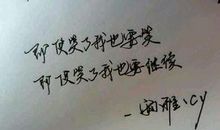 即使哭了我也要笑
即使哭了我也要继续
—娴雅、cy